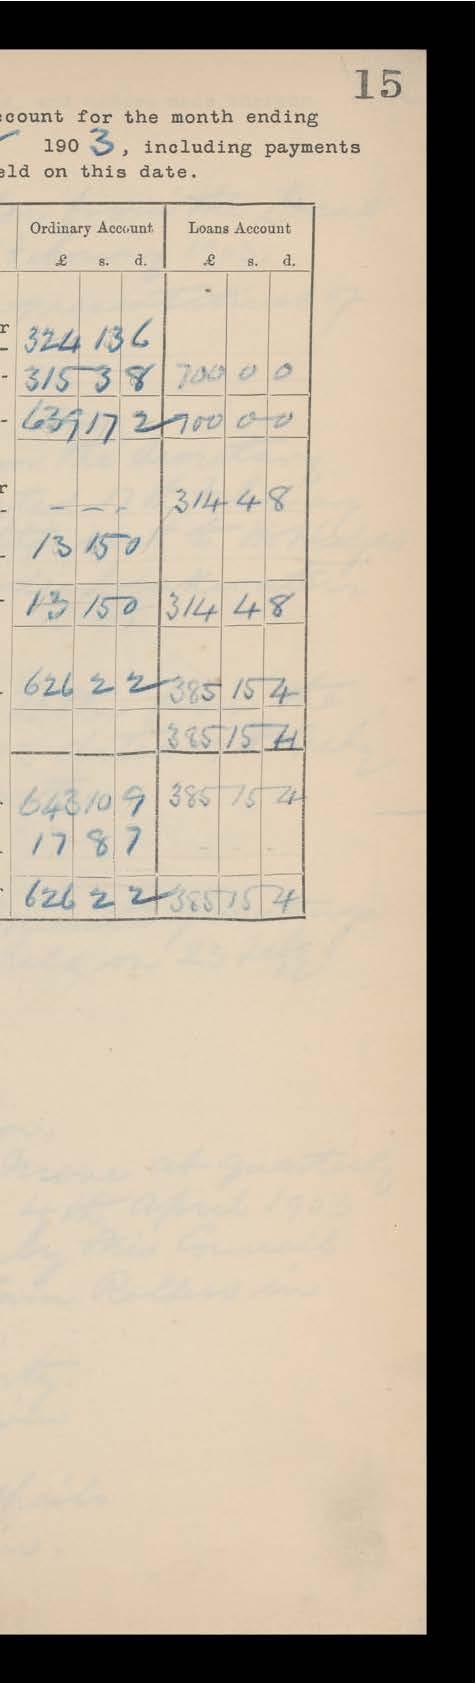 15
ccount for the month ending
190 3, including payments
eld on this date.
Ordinary Account Loans Account
£ s. d. £ s. d.
r
324 13 6
315 3 8 700 0 0
639 17 2 700 0 0
r
— — . 314 4 8
13 15 0
13 15 0 314 4 8
626 2 2 385 15 4
385 15 4
643 10 9 385 15 4
17 8 7
626 2 2 385 15 4